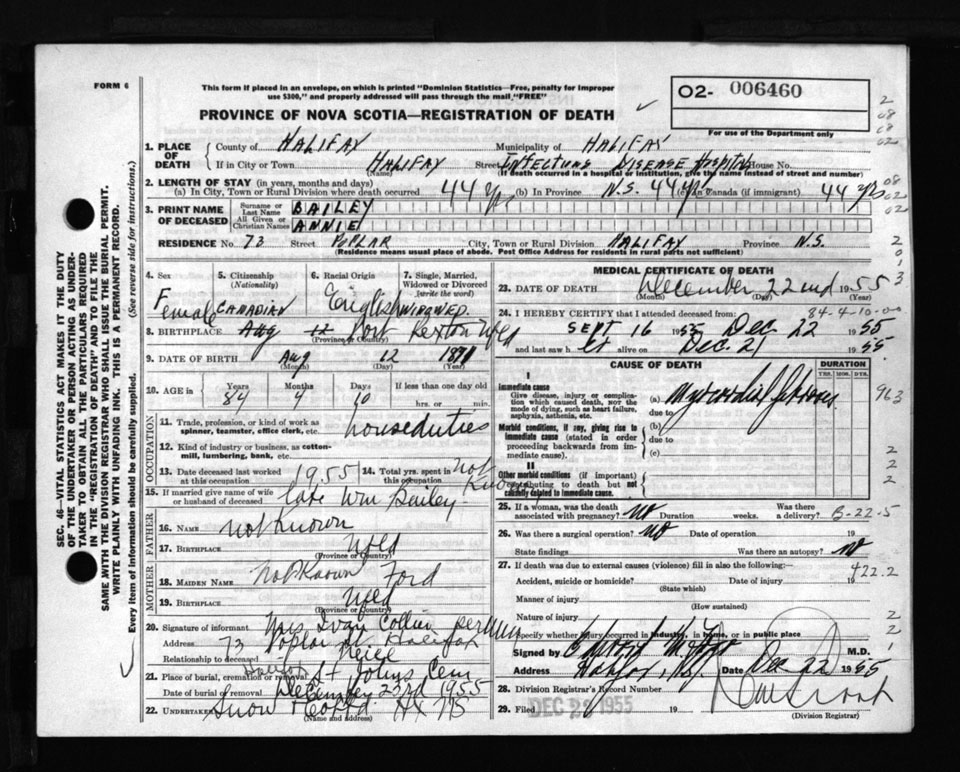 FORM 6
This form if placed in an envelope, on which is printed "Dominion Statistics—Free, penalty for improper
use $300," and properly addressed will pass through the mail "FREE"
PROVINCE OF NOVA SCOTIA—REGISTRATION OF DEATH
O2- 006460
For use of the Department only
1. PLACE OF DEATH
County of HALIFAX Municipality of HALIFAX
If in City or Town HALIFAX Street INFECTIOUS DISEASE HOSPITAL House No.
(Name) (If death occurred in a hospital or institution, give the name instead of street and number)
2. LENGTH OF STAY (in years, months and days)
(a) In City, Town or Rural Division where death occurred 44 yrs (b) In Province N.S. 44 yrs (c) In Canada (if immigrant) 44 yrs
3. PRINT NAME OF DECEASED
Surname or Last Name BAILEY
All Given or Christian Names ANNIE
RESIDENCE No. 73 Street POPLAR City, Town or Rural Division HALIFAX Province N.S.
(Residence means usual place of abode. Post Office Address for residents in rural parts not sufficient)
4. Sex Female
5. Citizenship (Nationality) CANADIAN
6. Racial Origin English
7. Single, Married, Widowed or Divorced (write the word) WIDOWED
8. BIRTHPLACE Aug 12 Port Rexton Nfld
(Province or Country)
9. DATE OF BIRTH Aug 12 1871
(Month) (Day) (Year)
10. AGE in Years 84 Months 4 Days 10 If less than one day old
hrs. or min.
OCCUPATION
11. Trade, profession, or kind of work as spinner, teamster, office clerk, etc. houseduties
12. Kind of industry or business, as cotton-mill, lumbering, bank, etc.
13. Date deceased last worked at this occupation 1955
14. Total yrs. spent in this occupation Not Known
15. If married give name of wife or husband of deceased late Wm Bailey
FATHER
16. NAME not known
17. BIRTHPLACE Nfld
(Province or Country)
MOTHER
18. MAIDEN NAME Not Known Ford
19. BIRTHPLACE Nfld
(Province or Country)
20. Signature of informant Mrs Ivan Collier per
Address 73 Poplar Halifax
Relationship to deceased Neice
21. Place of burial, cremation or removal St Johns Cem
Date of burial or removal December 23rd 1955
22. Undertaker Snow & Co Ltd Hx NS
(Name and address)
MEDICAL CERTIFICATE OF DEATH
23. DATE OF DEATH December 22nd 1955
(Month) (Day) (Year)
24. I HEREBY CERTIFY that I attended deceased from: 84-4-10-00
SEPT 16 1955 Dec. 22 1955
and last saw h er alive on Dec. 21 1955
CAUSE OF DEATH
DURATION
YRS. MOS. DYS.
I
Immediate cause
Give disease, injury or complication which caused death, not the mode of dying, such as heart failure, asphyxia, asthenia, etc.
(a) Myocardial
due to
Morbid conditions, if any, giving rise to immediate cause (stated in order proceeding backwards from immediate cause).
(b)
due to
(c)
II
Other morbid conditions (if important) contributing to death but not causally related to immediate cause.
25. If a woman, was the death associated with pregnancy? No Duration weeks. Was there a delivery? B-22-5
26. Was there a surgical operation? No Date of operation 19
State findings Was there an autopsy? No
27. If death was due to external causes (violence) fill in also the following:— 422.2
Accident, suicide or homicide? Date of injury 19
Manner of injury
(How sustained)
Nature of injury
Specify whether injury occurred in industry, in home, or in public place
Signed by M.D.
Address Halifax, N.S. Date Dec 22 1955
28. Division Registrar's Record Number
29. Filed DEC 1955 19
(Division Registrar)
SEC. 46—VITAL STATISTICS ACT MAKES IT THE DUTY
OF THE UNDERTAKER OR PERSON ACTING AS UNDER-
TAKER TO OBTAIN ALL THE PARTICULARS REQUIRED
IN THE "REGISTRATION OF DEATH" AND TO FILE THE
SAME WITH THE DIVISION REGISTRAR WHO SHALL ISSUE THE BURIAL PERMIT.
WRITE PLAINLY WITH UNFADING INK. THIS IS A PERMANENT RECORD.
Every item of information should be carefully supplied. (See reverse side for instructions.)